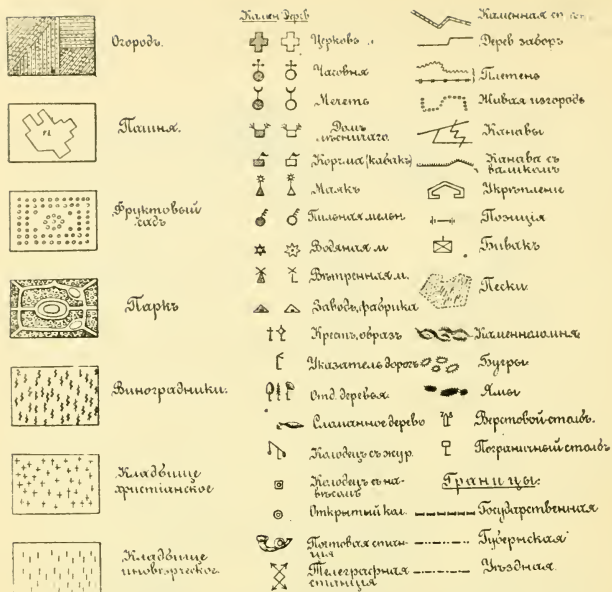 Огородъ.
Пашня.
Фруктовый
садъ
Паркъ
Виноградники.
Кладбище
христіанское
Кладбище
иновѣрческое.
Камен Дерев
Церковь
Часовня
Мечеть
Домъ
лѣсничаго.
Корчма (кабакъ)
Маякъ
Пильная мельн
Водяная м
Вѣтренная м.
Заводъ, фабрика
Крестъ, образъ
Указатель дорогъ
Отд. деревья
Сломанное дерево
Колодецъ съ жур.
Колодецъ съ на-
вѣсомъ
Открытый кол.
Почтовая стан-
ція
Телеграфная
станція
Каменная
Дерев заборъ
Плетень
Живая изгородь
Канавы
Канава съ
валикомъ
Укрѣпленіе
Позиція
Бивакъ
Пески
Каменноломня
Бугры
Ямы
Верстовой столбъ.
Пограничный столбъ
Границы:
Государственная
Губернская
Уѣздная.